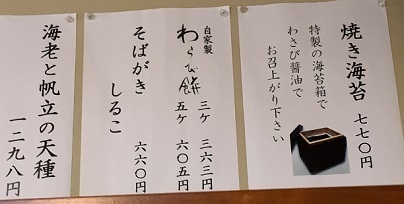 焼き海苔 七七〇円
特製の海苔箱で
わさび醤油で
お召上がり下さい
自家製
わらび餅 三ケ 三六三円
五ケ 六〇五円
そばがき
しるこ 六六〇円
海老と帆立の天種
一二九八円